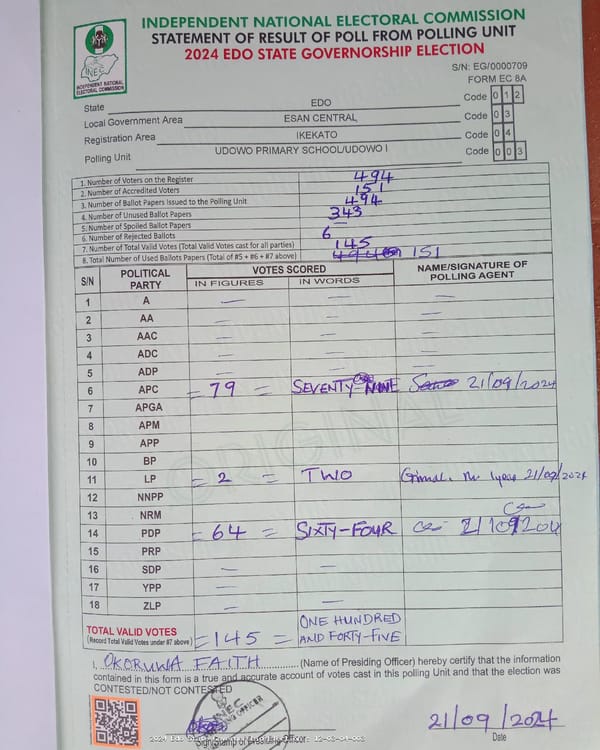 INDEPENDENT NATIONAL ELECTORAL COMMISSION
STATEMENT OF RESULT OF POLL FROM POLLING UNIT
2024 EDO STATE GOVERNORSHIP ELECTION
INEC
INDEPENDENT NATIONAL
ELECTORAL COMMISSION
S/N: EG/0000709
FORM EC 8A
State EDO Code 0 1 2
Local Government Area ESAN CENTRAL Code 0 3
Registration Area IKEKATO Code 0 4
Polling Unit UDOWO PRIMARY SCHOOL/UDOWO I Code 0 0 3
1. Number of Voters on the Register 494
2. Number of Accredited Voters 151
3. Number of Ballot Papers Issued to the Polling Unit 494
4. Number of Unused Ballot Papers 343
5. Number of Spoiled Ballot Papers —
6. Number of Rejected Ballots 6
7. Number of Total Valid Votes (Total Valid Votes cast for all parties) 145
8. Total Number of Used Ballots Papers (Total of #5 + #6 + #7 above) 151
S/N POLITICAL PARTY VOTES SCORED NAME/SIGNATURE OF POLLING AGENT
IN FIGURES IN WORDS
1 A — — —
2 AA — — —
3 AAC — — —
4 ADC — —
5 ADP — — —
6 APC = 79 = SEVENTY-NINE 21/09/2024
7 APGA
8 APM
9 APP
10 BP
11 LP = 2 = TWO 21/09/2024
12 NNPP
13 NRM
14 PDP = 64 = SIXTY-FOUR
15 PRP
16 SDP — —
17 YPP — —
18 ZLP — —
TOTAL VALID VOTES = 145 = ONE HUNDRED AND FORTY-FIVE
(Record Total Valid Votes under #7 above)
ORIGINAL
I, OKORUWA FAITH (Name of Presiding Officer) hereby certify that the information
contained in this form is a true and accurate account of votes cast in this polling Unit and that the election was
CONTESTED/NOT CONTESTED
INEC
21/09/2024
Sign/Stamp of Presiding Officer
Date